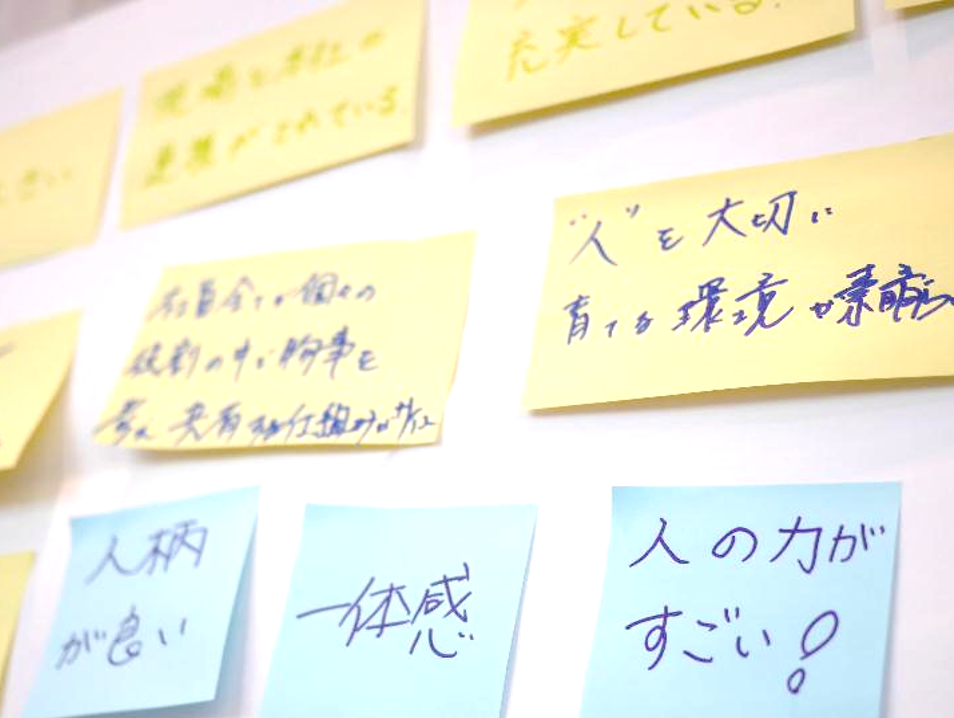 充実している!
現場と本社の
連携がとれている
さい
"人"を大切に
育てる環境が素晴
社員全てが個々の
役割の中で
考え 共有する仕組みが
人柄
が良い
一体感
人の力が
すごい!